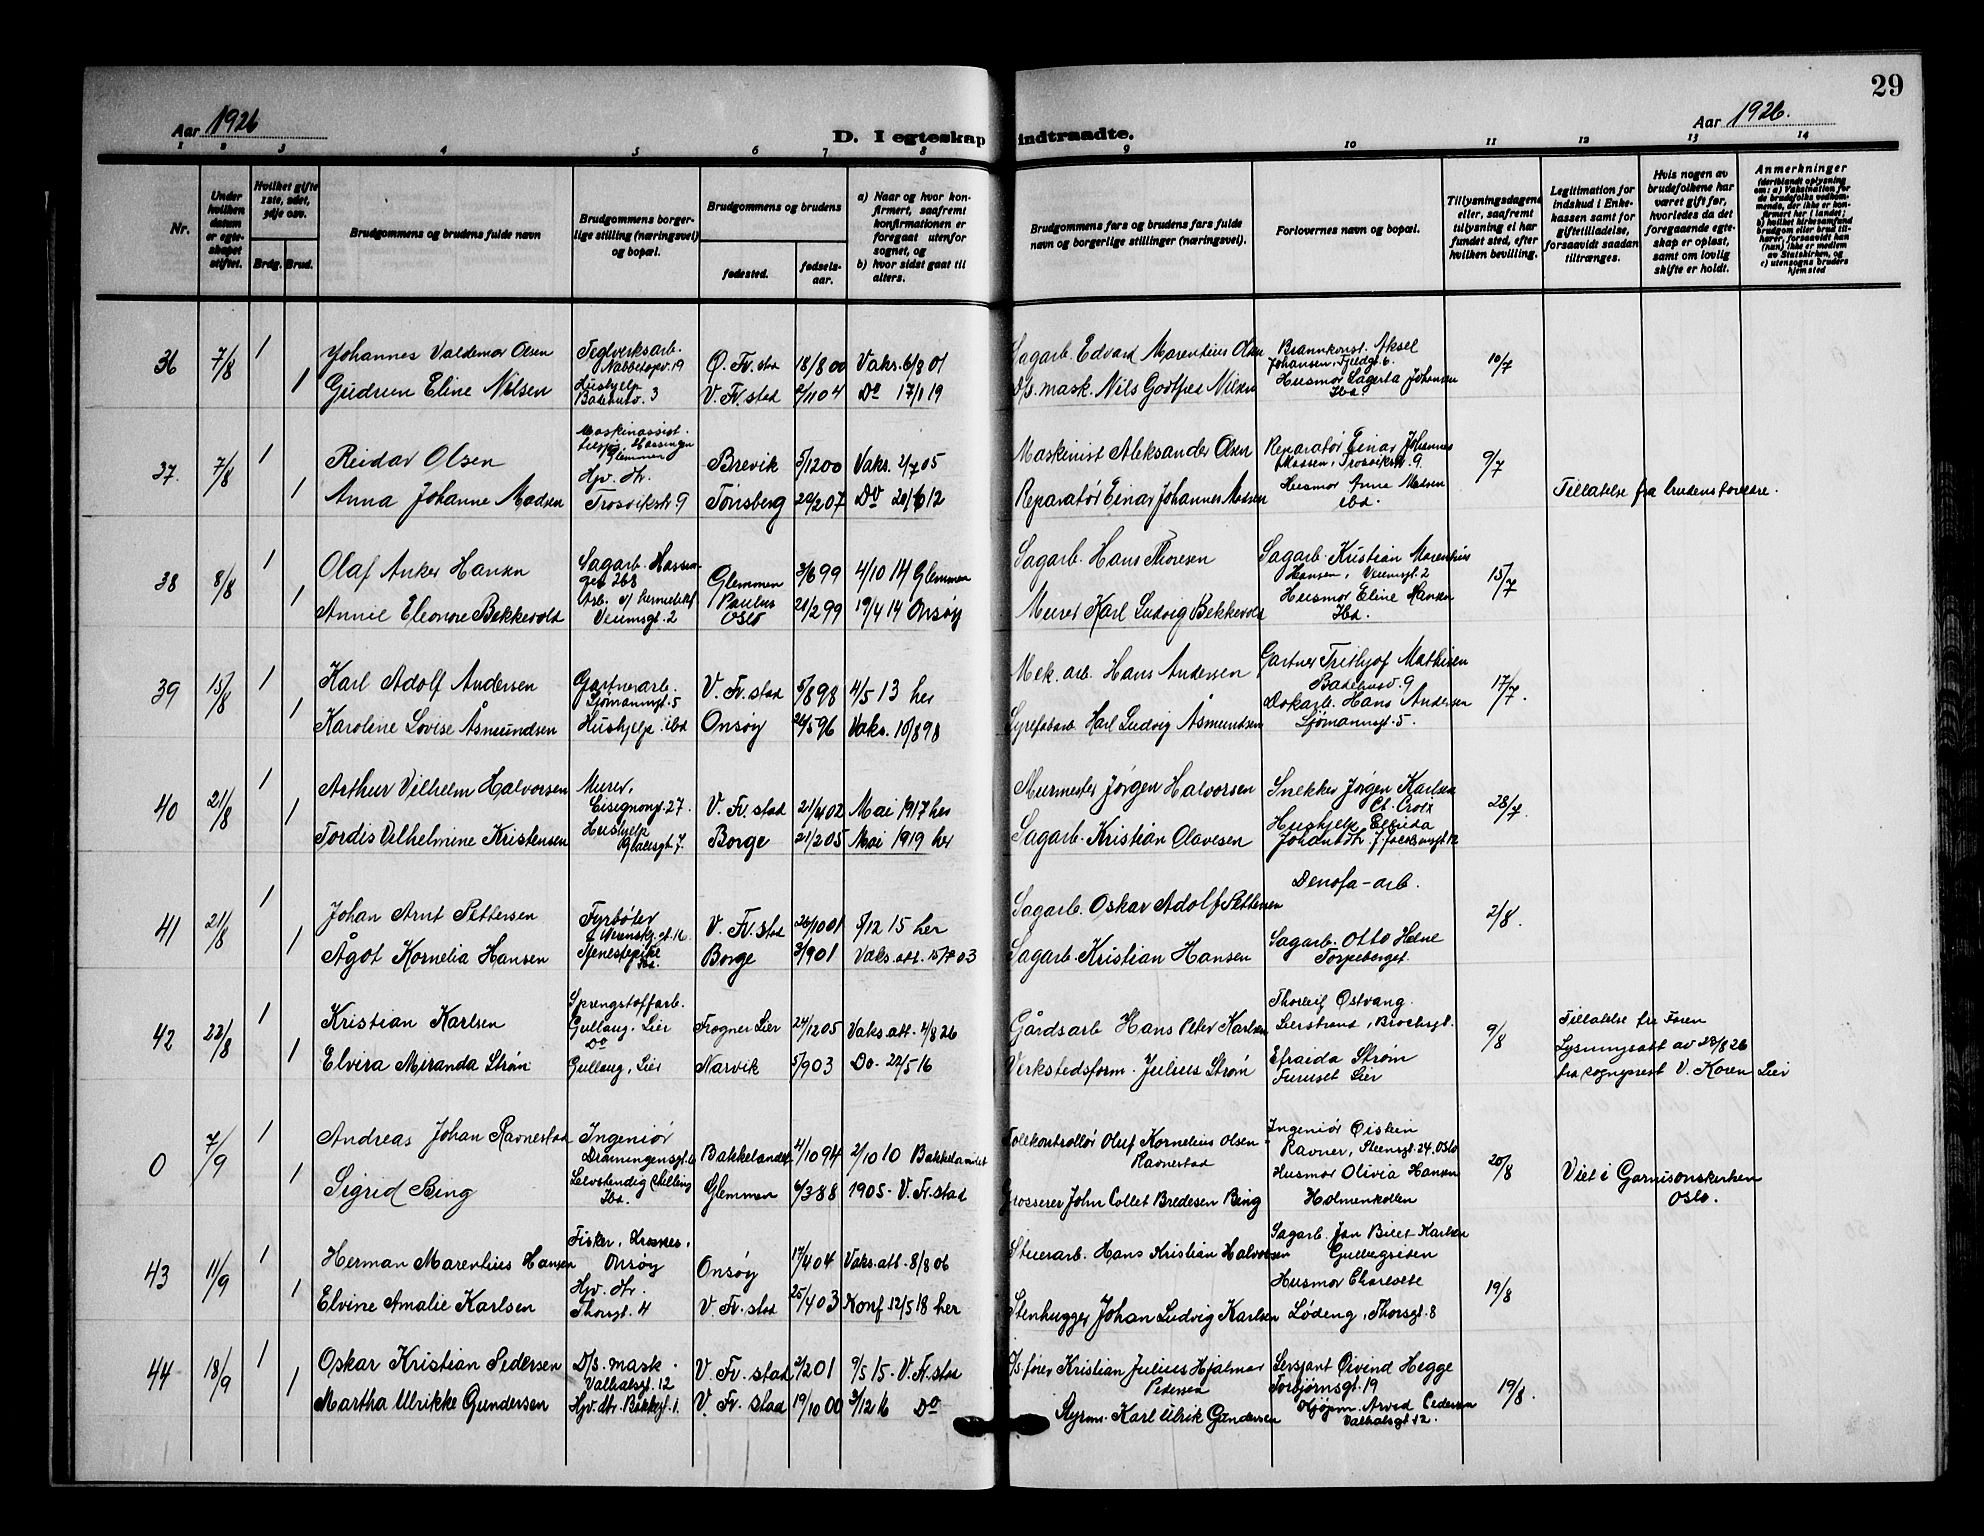 29
Aar 1926
D. I egteskap indtraadte.
Aar 1926.
1 2 3 4 5 6 7 8 9 10 11 12 13 14
Nr.
Under hvilken datum er egteskapet stiftet.
Hvilket gifte 1ste, 2det, 3dje osv.
Brdg. Brud.
Brudgommens og brudens fulde navn
Brudgommens borgerlige stilling (næringsvei) og bopæl.
Brudgommens og brudens
fødested.
fødselsaar.
a) Naar og hvor konfirmert, saafremt konfirmationen er foregaat utenfor sognet, og
b) hvor sidst gaat til alters.
Brudgommens fars og brudens fars fulde navn og borgerlige stillinger (næringsvei).
Forlovernes navn og bopæl.
Tillysningsdagene eller, saafremt tillysning ei har fundet sted, efter hvilken bevilling.
Legitimation for indskud i Enkekassen samt for giftetilladelse, forsaavidt saadan tiltrænges.
Hvis nogen av brudefolkene har været gift før, hvorledes da det foregaaende egteskap er opløst, samt om lovlig skifte er holdt.
Anmerkninger
(deriblandt oplysning om: a) Vaksination for de brudefolks vedkommende, der ikke er konfirmert her i landet; b) hvilket kirkesamfund brudgom eller brud tilhører, forsaavidt han (hun) ikke er medlem av Statskirken, og c) utensogns bruders hjemsted
36 7/8 1 Johannes Valdemar Olsen Teglverksarb. Nabbetopv. 19 Ø. Fr. stad 18/8 00 Vaks. 6/8 01 Sagarb. Edvard Marentius Olsen Brannkonst. Aksel Johansen, Fjeldgt. 6. 10/7
1 Gudrun Eline Nilsen Hushjelp Badehusv. 3 V. Fr. stad 2/11 04 Do 17/1 19 D/s. mask. Nils Godtfred Nilsen Husmor Lagerta Johansen Ibd.
37. 7/8 1 Reidar Olsen Maskinassist. Hassingen Glemmen Brevik 5/12 00 Vaks. 2/7 05 Maskinist Aleksander Olsen Reparatør Einar Johannes Madsen, Trosvikstr. 9. 9/7
1 Anna Johanne Madsen Hjv. Dtr. Trosvikstr. 9 Tønsberg 20/2 07 Do 20/6 12 Reparatør Einar Johannes Madsen Husmor Anna Madsen ibd. Tillatelse fra brudens foreldre.
38 8/8 1 Olaf Anker Hansen Sagarb. Hassinget 268 Glemmen 3/6 99 4/10 14 Glemmen Sagarb. Hans Thoresen Sagarb. Kristian Marentius Hansen, Veumsgt. 2 15/7
1 Annie Eleonore Bekkevold Arb. v/ hermetikf. Veumsgt. 2 Paulus Oslo 21/2 99 19/4 14 Onsøy Murer Karl Ludvig Bekkevold Husmor Eline Hansen Ibd.
39 15/8 1 Karl Adolf Andersen Gartnerarb. Sjømannsgt. 5 V. Fr. stad 5/8 98 4/5 13 her Mek. arb. Hans Andersen Gartner Frithjof Mathisen Badehusv. 9 17/7.
1 Karoline Lovise Åsmundsen Hushjelp ibd Onsøy 26/5 96 Vaks. 10/8 98 Syrefabarb. Karl Ludvig Åsmundsen Dokarb. Hans Andersen Sjømannsgt. 5.
40 21/8 1 Arthur Vilhelm Halvorsen Murer, Cisegnongt. 27. V. Fr. stad 21/4 02 Mai 1917 her Murmester Jørgen Halvorsen Snekker Jørgen Karlsen Ch. Croix 28/7.
1 Tordis Vilhelmine Kristensen Hushjelp 7 Borge 21/2 05 Mai 1919 her Sagarb. Kristian Olavesen Hushjelp Elfrida
41 21/8 1 Johan Arnt Pettersen Fyrbøter V. Fr. stad 26/10 01 5/12 15 her Sagarb. Oskar Adolf Pettersen Denofa-arb. 2/8.
1 Ågot Kornelia Hansen Tjenestepike Ibd. Borge 3/9 01 Vaks. att. 15/7 03 Sagarb. Kristian Hansen Sagarb. Otto Helne Torpeberget.
42 22/8 1 Kristian Karlsen Sprengstoffarb. Gullaug, Lier Frogner Lier 24/12 05 Vaks. att. 4/8 26 Gårdsarb Hans Peter Karlsen Thorleif Østvang. Lierstrand, Brochsgt. 9/8 Tillatelse fra Faren
1 Elvira Miranda Strøm Do Gullaug, Lier Narvik 5/9 03 Do. 22/5 16 Verkstedsform. Julius Strøm Efraida Strøm Furuset Lier Lysningsatt av 22/8 26 fra sogneprest V. Koren Lier
0 7/9 1 Andreas Johan Ravnestad Ingeniør Dramingensgt. 6 Bakkelandet 4/10 94 2/10 10 Bakkelandet Tollkontrollør Oluf Kornelius Olsen Ravnestad Ingeniør Øistein Ravner, Steensgt. 24. Oslo 20/8
1 Sigrid Bing Selvstendig stilling Ibd. Glemmen 6/3 88 1905. V. Fr. stad Grosserer John Collet Bredesen Bing Husmor Olivia Hansen Holmenkollen Viet i Garnisonskirken Oslo.
43 11/9 1 Herman Marentius Hansen Fisker, Onsøy Onsøy 17/4 04 Vaks. att. 8/8 06 Stuerarb. Hans Kristian Halvorsen Sagarb. Jon Biret Karlsen Gullbegriden 19/8
1 Elvine Amalie Karlsen Hjv. Dtr. Thorsgt. 4 V. Fr. stad 25/4 03 Konf 12/5 18 her Stenhugger Johan Ludvig Karlsen Husmor Charlotte Lødeng, Thorsgt. 8
44 18/9 1 Oskar Kristian Pedersen D/s. mask. Valhalsgt. 12 V. Fr. stad 2/2 01 9/5 15. V. Fr. stad D/s fører Kristian Julius Hjalmar Pedersen Sersjant Øivind Hegge Torbjørnsgt. 19 19/8.
1 Martha Ulrikke Gundersen Hjv. dtr. Bakkegt. 1. V. Fr. stad 19/10 00 3/12 16 Do Styrm. Karl Ulrik Gundersen Arvid Pedersen Valhalsgt 12.